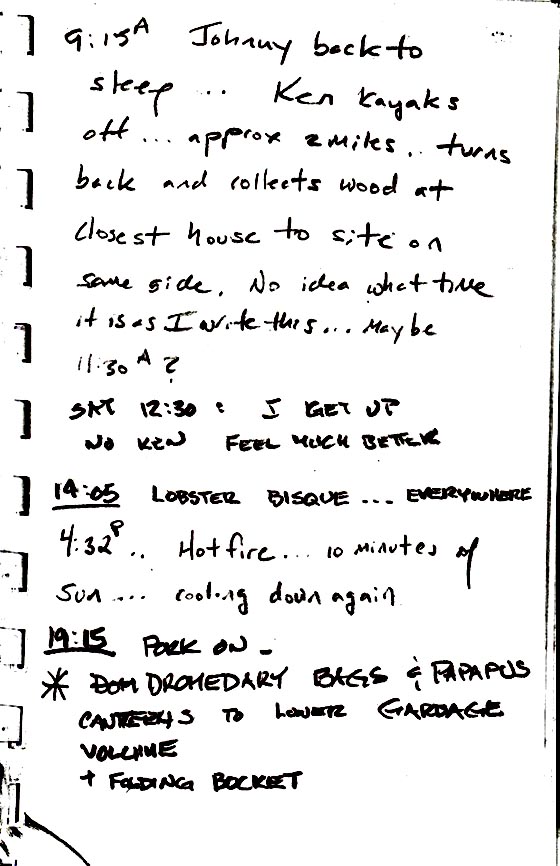 9:15A Johnny back to
sleep ... Ken Kayaks
off ... approx 2 miles .. turns
back and collects wood at
closest house to site on
same side. No idea what time
it is as I write this ... maybe
11:30 A ?
SAT 12:30 : I GET UP
NO KEN FEEL MUCH BETTER
14:05 LOBSTER BISQUE ... EVERYWHERE
4:32P .. Hot fire ... 10 minutes of
Sun .... cooling down again
19:15 PORK ON -
* DROMEDARY BAGS &
TO LOWER GARBAGE
VOLUME
+ FOLDING BUCKET